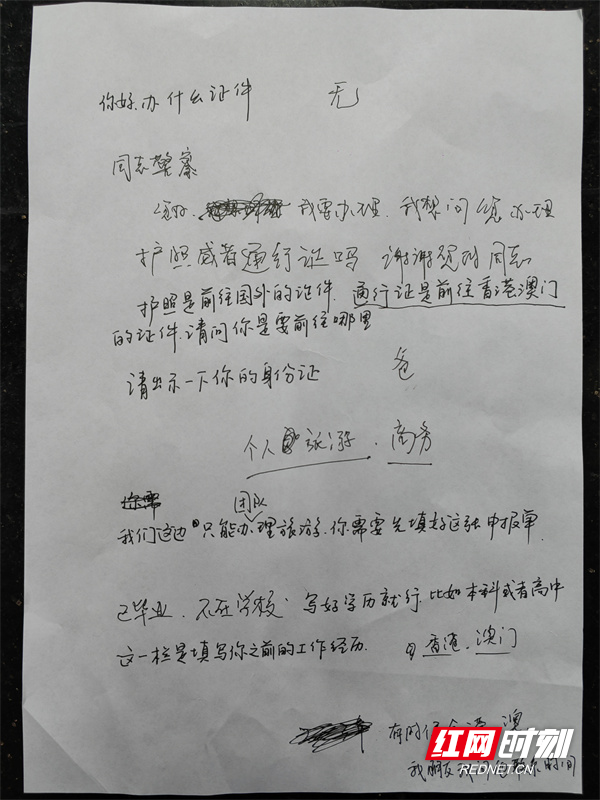 你好.办什么证件 无
同志警察
您好. 我要办理. 我想问 您 办理
护照或者通行证吗 谢谢 同志
护照是前往国外的证件. 通行证是前往香港澳门
的证件.请问你是要前往哪里
请出示一下你的身份证
个人 旅游. 商务
团队
我们这边只能办理旅游.你需要先填好这张申报单.
已毕业. 不在学校. 写好学历就行.比如本科或者高中
这一栏是填写你之前的工作经历. 香港.澳门
有时 澳
我朋友 时间
红网时刻
REDNET.CN